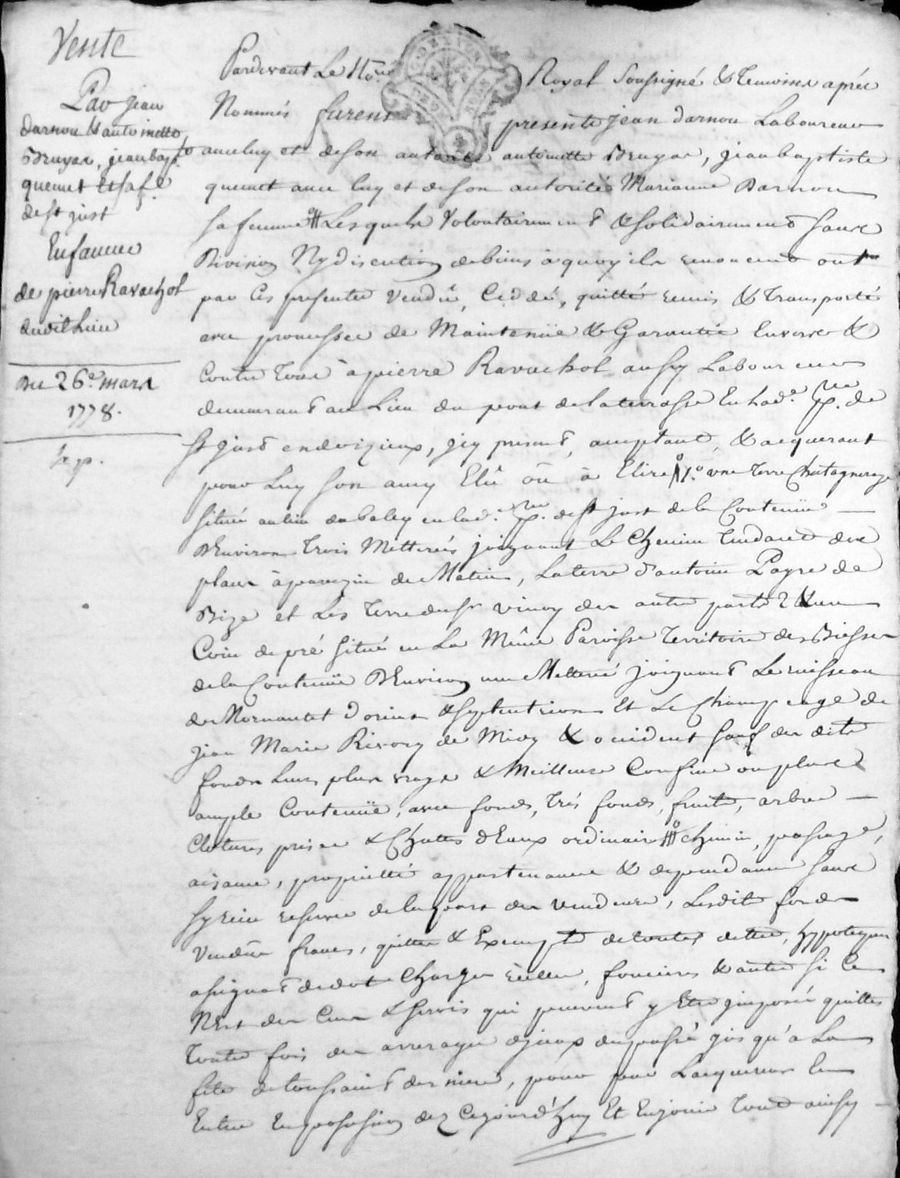 Vente
Par jean
darnou & antoinette
Bruyas, jean bapte
quenet et sa fe
de st just
En faveur
de pierre Ravachol
dudit lieu
Du 26e mars
1778.
Pardevant Le Nore Royal Soussigné & temoins aprés
Nommés furent presents jean darnou Laboureur
avec luy et de son autorité antoinette Bruyas, jean baptiste
quenet avec luy et de son autorité Marianne Darnou
sa femme Lesquels Volontairement & solidairement sans
Division Ny discution de biens à quoy ils renoncent ont
par Ces presentes vendu, Ceddé, quitté remis & transporté
avec promesse de Maintenüe & Garantie Envers &
Contre Tous à pierre Ravachol aussy Laboureur
demeurant au Lieu du pont de la terrasse En lad. psse de
st just en doizieux, jcy present, acceptant, & acquerant
pour Luy son amy Elû où à Elire 1o une Terre Chatagneraye
située au lieu du in lad. psse de st just de la Contenüe
D'Environ trois Metterés joignant Le Chemin Tendant de
à paveyin de Matin, La terre d'antoine Payre de
Bize et Les terres du sr vinoy des autres parts 2 & un
Coin de pré situé en La Même Paroisse Territoire des
de la Contenüe D'Environ une Metteré joignant Le ruisseau
de d'orient & septentrion Et Le Champéage de
jean Marie Rivory de Midy & occident sauf des dits
fonds Leurs plus vrays & Meilleurs Confins ou plus
ample Contenüe, avec fonds, trés fonds, fruits, arbres
Clotures prises & Chuttes d'Eaux ordinaires chemin, passage,
aisance, proprieté appartenance & dependance sans
rien reserver de la part des vendeurs, Lesdits fonds
vendus francs, quittes & Exempts de toutes dettes, hypoteques
assignat de dot Charges réelles, foncieres & autres si Ce
N'Est des Cens & servis qui peuvent y Etre jmposés quittes
Toutes fois des arrerages d'jceux du passé jusqu'à La
fête de toussaint derniere, pour par L'acquereur les
Entrer En possession dez Cejourd'huy Et En jouir tout ainsy